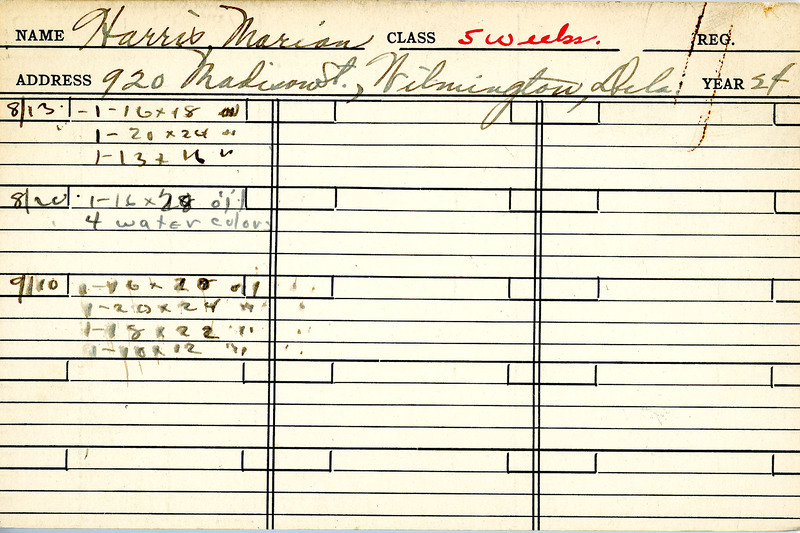 NAME Harris, Marion CLASS 5 weeks. REG.
ADDRESS 920 Madison St., Wilmington, Dela. YEAR 24
8/13 - 1-16x18 "
1-20x24 "
1-13x16 "
8/20 1-16x28 oil
4 water colors
9/10 1-16x20 oil
1-20x24 "
1-18x22 "
1-10x12 "